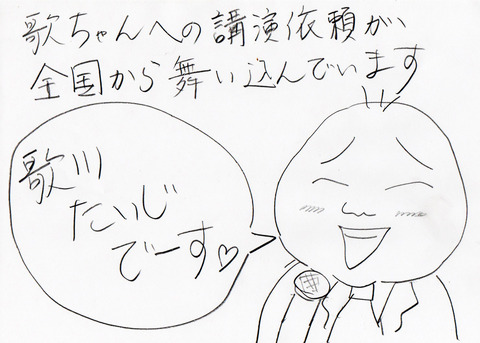 歌ちゃんへの講演依頼が、
全国から舞い込んでいます
歌川
たいじ
でーす♡